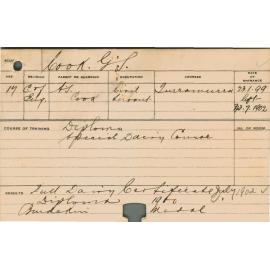 Cook. G.S.
AGE RELIGION PARENT OR GUARDIAN OCCUPATION ADDRESS DATE OF ENTRANCE
19 C of Eng. Cook Civil Servant Turramurra 23.1.99
7.1902
COURSE OF TRAINING
Diploma
Special Dairy Course
RESULTS Dairy Certificate July 1902
Diploma 1900
Burdekin Medal